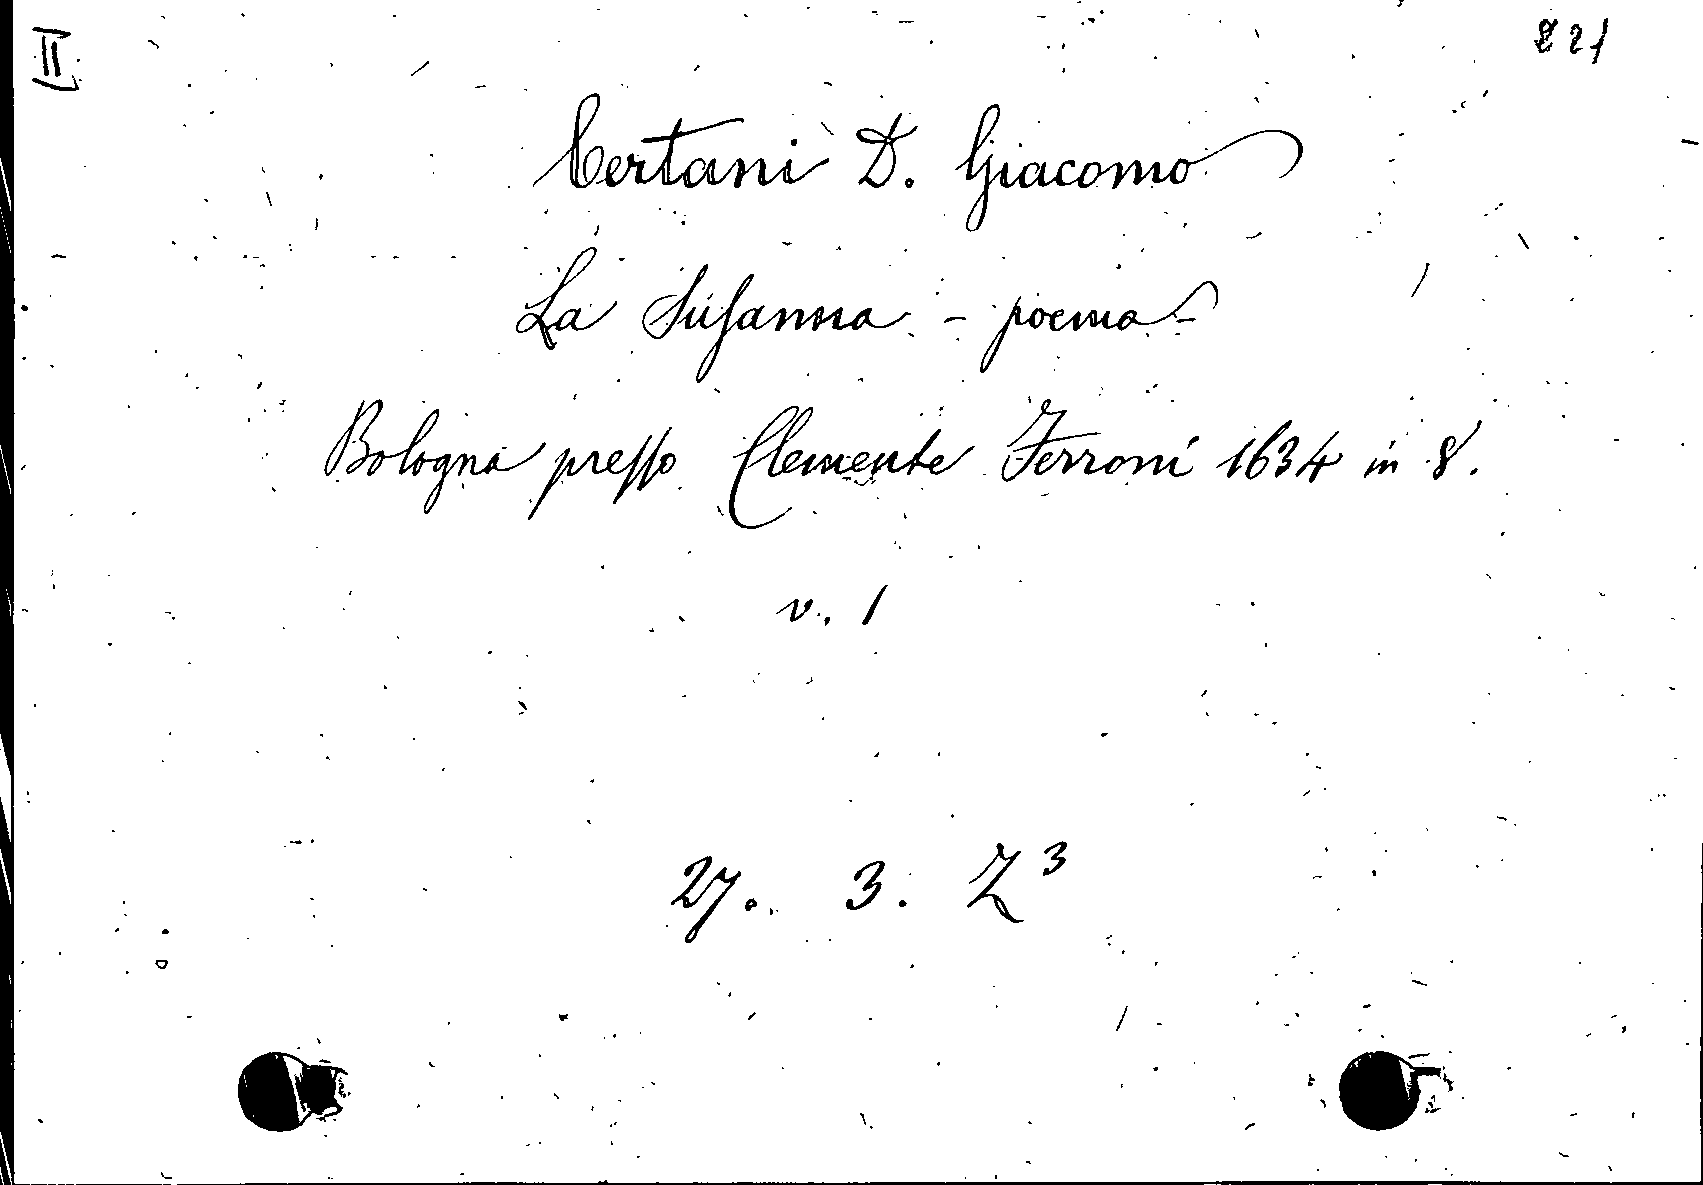 II
221
Certani D. Giacomo
La Susanna - poema -
Bologna presso Clemente Ferroni 1634 in 8.
v. 1
27. 3. Z 3